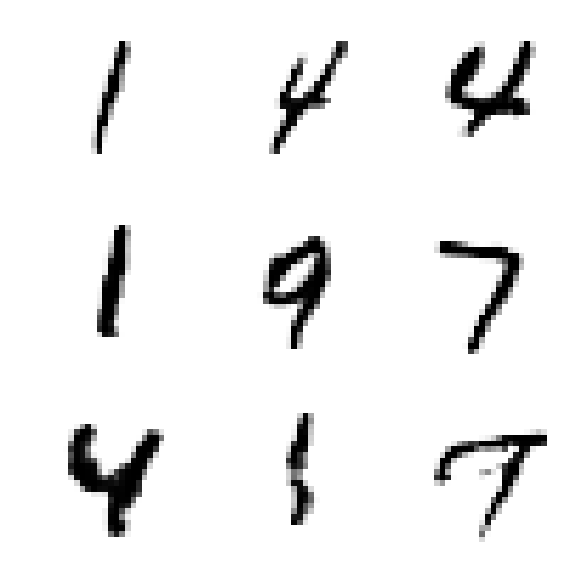 1 4 4
1 9 7
4 7